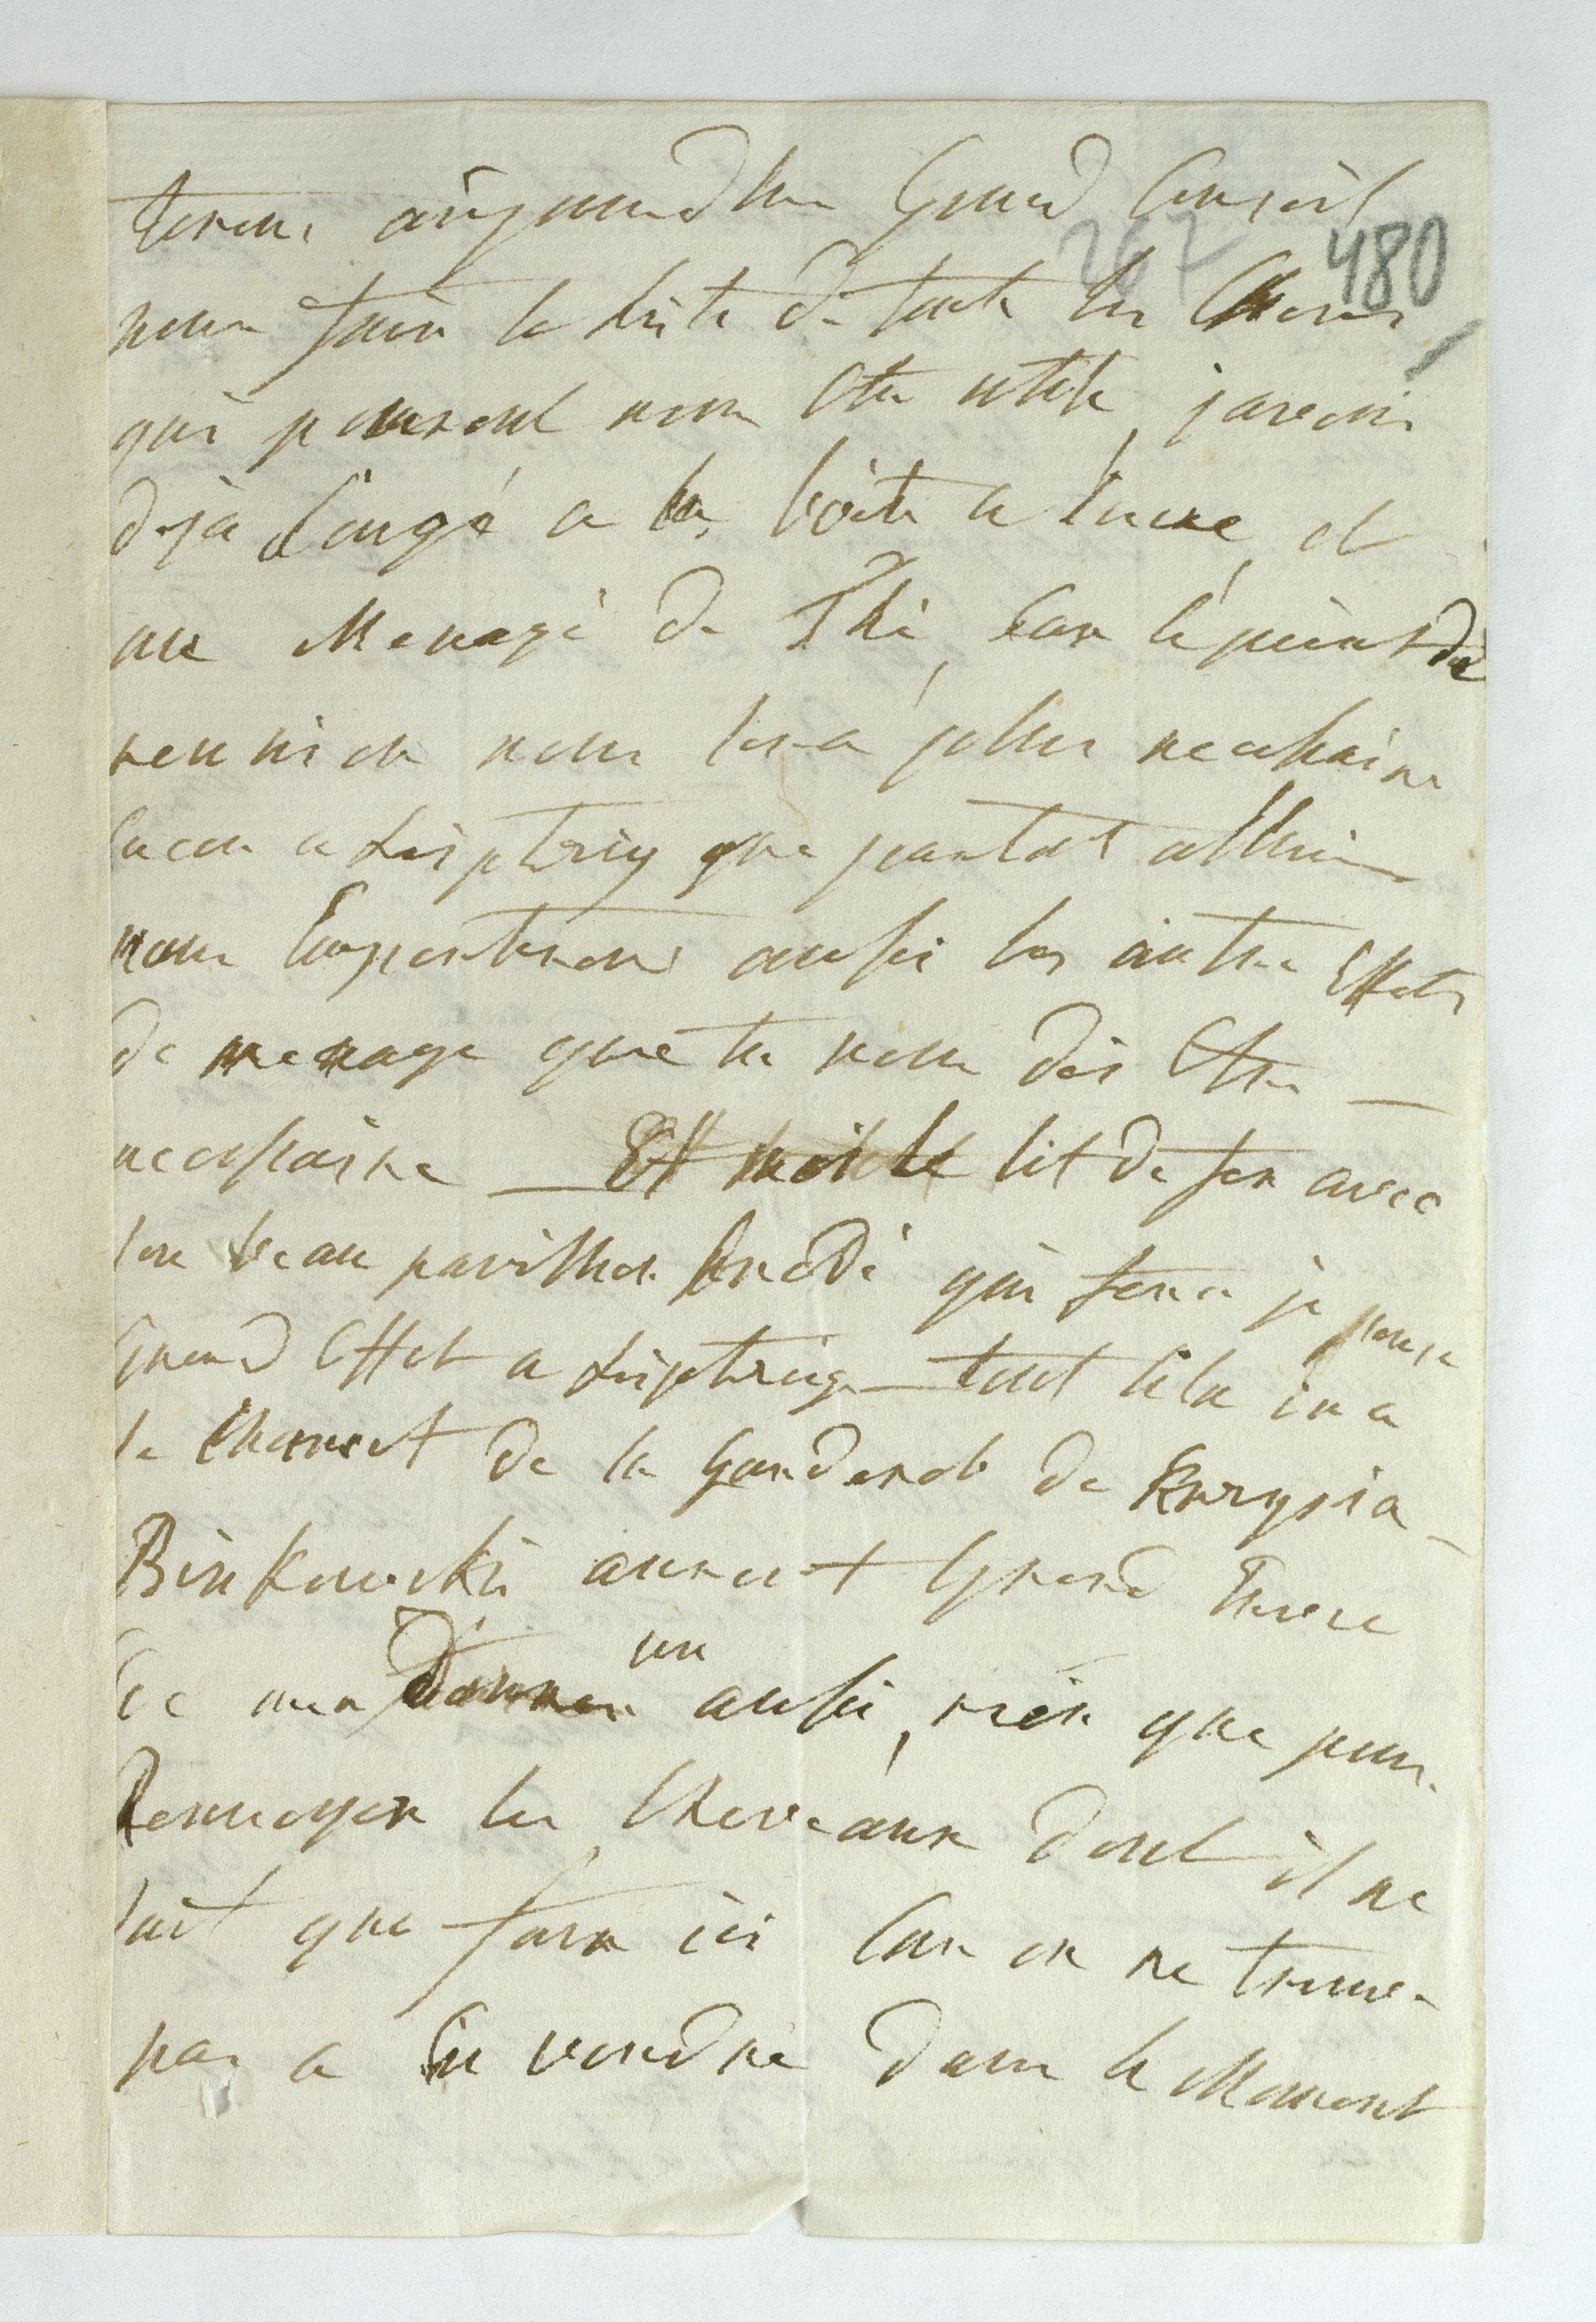 267 480
ferons aujourdhui Grand Conseil
pour faire la Liste de toute les Choses
qui pouront nous etre utile, javois
deja songé a la boite a sucre, et
au Menage de Thé, Car le point de
reunion nous sera plus necessaire
encore a Leiptzig que partout allieurs
nous Emporterons aussi les autre Effets
de menage que tu nous dis Etre —
necessaire — Et lit de fer avec
son beau pavillion brodé qui fera je pense
Grand Effet a Leiptzig — tout cela ira
le Charect de la Garderob de Krzysia —
Binkowski auroit Grand Envie
de men Donner un aussi, rien que pour
Renvoyer les Chevaux dont il ne
sait que faire ici Car on ne trouve
pas a les vendre dans le Moment